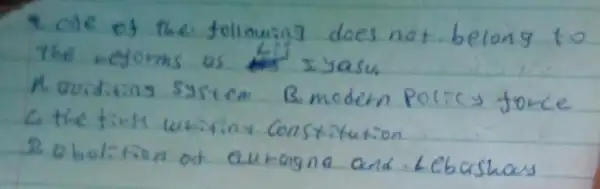 one of the following does not belong to
the reforms of Lij Iyasu
A. auditing system B. modern Policy force
C. the first writing Constitution
D abolition of quragna and Lebashay